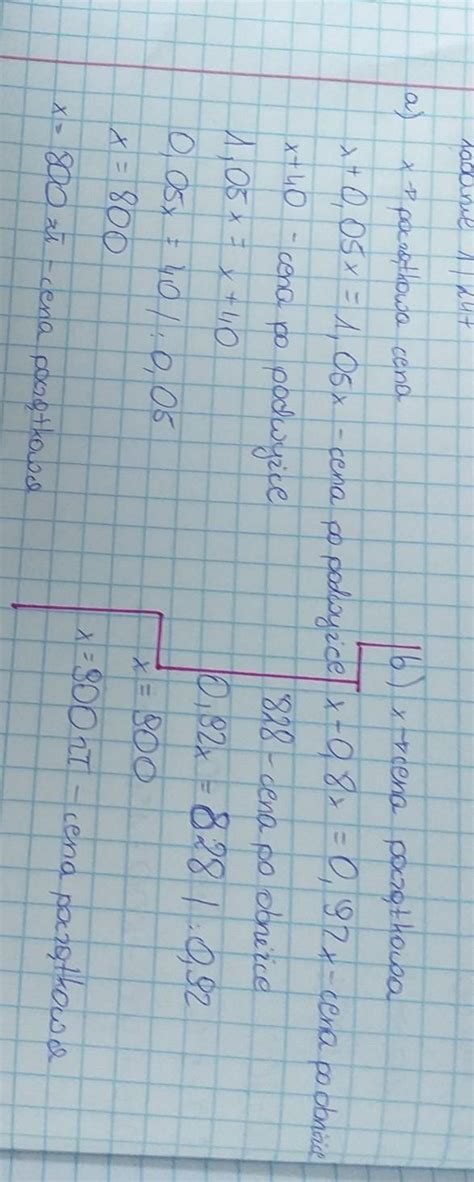 zadanie 1/247
a) x → początkowa cena
x + 0,05x = 1,05x - cena po podwyżce
x+40 - cena po podwyżce
1,05x = x+40
0,05x = 40 /:0,05
x = 800
x = 800 zł - cena początkowa
b) x → cena początkowa
x - 0,8x = 0,92x - cena po obniżce
828 - cena po obniżce
0,92x = 828 / :0,92
x = 900
x = 900 zł - cena początkowa